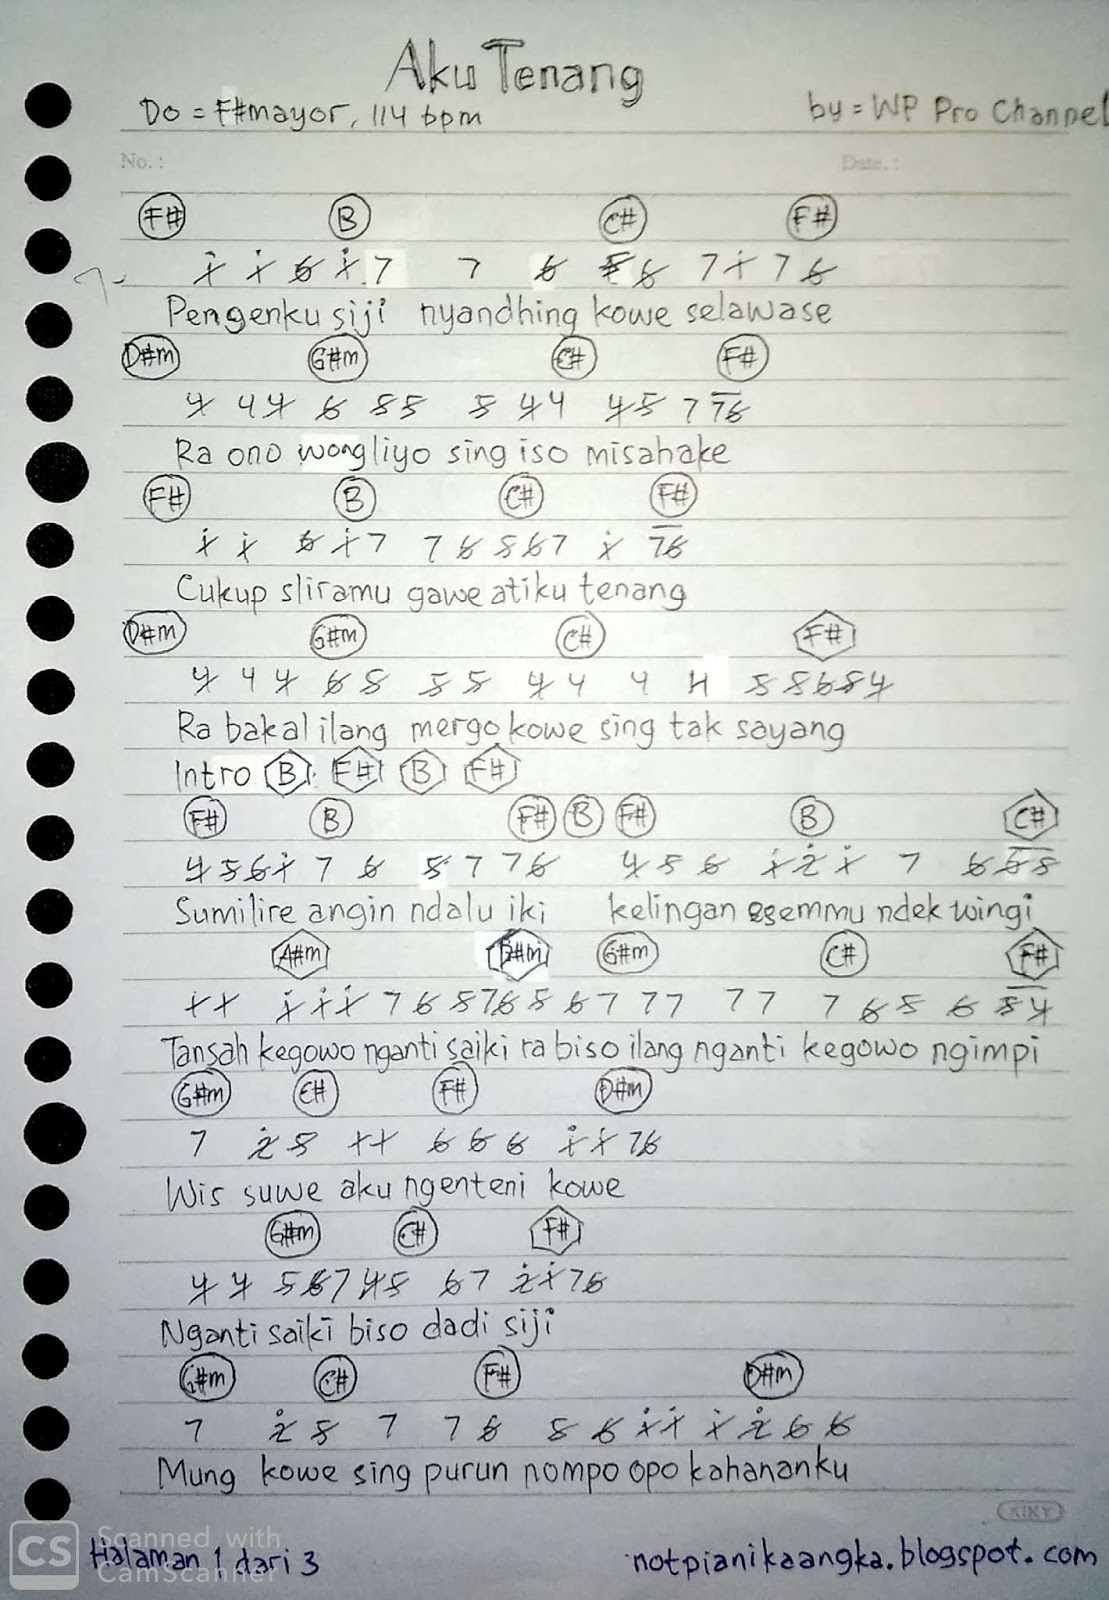 Aku Tenang
Do = F#mayor, 114 bpm by = WP Pro Channel
No. : Date. :
F# B C# F#
1̸̇ 1̸̇ 6̸ 1̸̇ 7 7 6̸ 5̸ 6̸ 7 1̸̇ 7 6̸
Pengenku siji nyandhing kowe selawase
D#m G#m C# F#
4̸ 4 4̸ 6̸ 5̸ 5̸ 5̸ 4̸ 4 4̸ 5̸ 7 7 6̸
Ra ono wong liyo sing iso misahake
F# B C# F#
1̸̇ 1̸̇ 6̸ 1̸̇ 7 7 6̸ 5̸ 6̸ 7 1̸̇ 7 6̸
Cukup sliramu gawe atiku tenang
D#m G#m C# F#
4̸ 4 4̸ 6̸ 5̸ 5̸ 5̸ 4̸ 4 4 4 5̸ 5̸ 6̸ 5̸ 4̸
Ra bakal ilang mergo kowe sing tak sayang
Intro B F# B F#
F# B F# B F# B C#
4̸ 5̸ 6̸ 1̸̇ 7 6̸ 5̸ 7 7 6̸ 4̸ 5̸ 6̸ 1̸̇ 2̸̇ 1̸̇ 7 6̸ 6̸ 5̸
Sumilire angin ndalu iki kelingan esemmu ndek wingi
A#m D#m G#m C# F#
1̸ 1̸ 1̸̇ 1̸̇ 1̸̇ 7 6̸ 5̸ 7 6̸ 5̸ 6̸ 7 7 7 7 7 7 6̸ 5̸ 6̸ 5̸ 4̸
Tansah kegowo nganti saiki ra biso ilang nganti kegowo ngimpi
G#m C# F# D#m
7 2̸̇ 5̸ 1̸ 1̸ 6̸ 6̸ 6̸ 1̸̇ 1̸ 7 6̸
Wis suwe aku ngenteni kowe
G#m C# F#
4̸ 4̸ 5̸ 6̸ 7 4̸ 5̸ 6̸ 7 2̸̇ 1̸̇ 7 6̸
Nganti saiki biso dadi siji
G#m C# F# D#m
7 2̸̇ 5̸ 7 7 6̸ 5̸ 6̸ 1̸̇ 1̸̇ 1̸̇ 2̸̇ 6̸ 6̸
Mung kowe sing purun nompo opo kahananku
KIKY
CS Scanned with CamScanner
Halaman 1 dari 3 notpianikaangka.blogspot.com